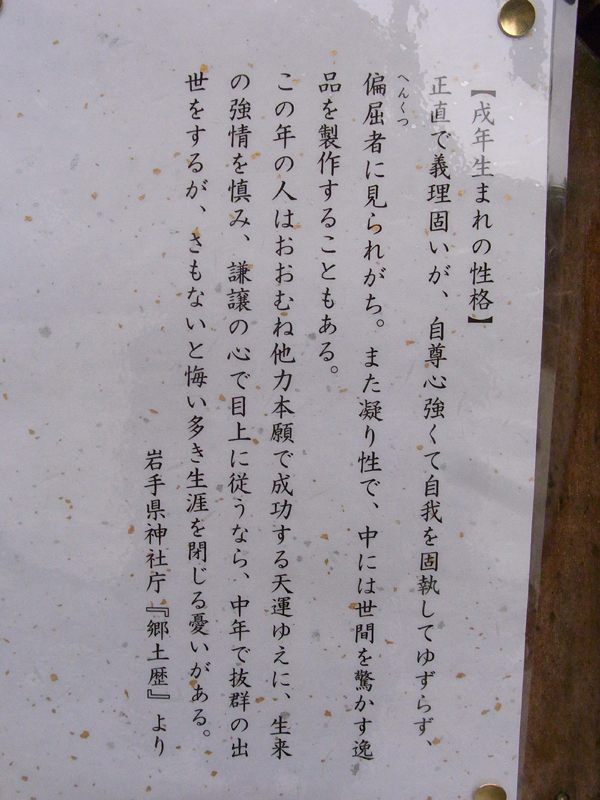 【戌年生まれの性格】
正直で義理固いが、自尊心強くて自我を固執してゆずらず、
へんくつ
偏屈者に見られがち。また凝り性で、中には世間を驚かす逸
品を製作することもある。
この年の人はおおむね他力本願で成功する天運ゆえに、生来
の強情を慎み、謙譲の心で目上に従うなら、中年で抜群の出
世をするが、さもないと悔い多き生涯を閉じる憂いがある。
岩手県神社庁『郷土歴』より